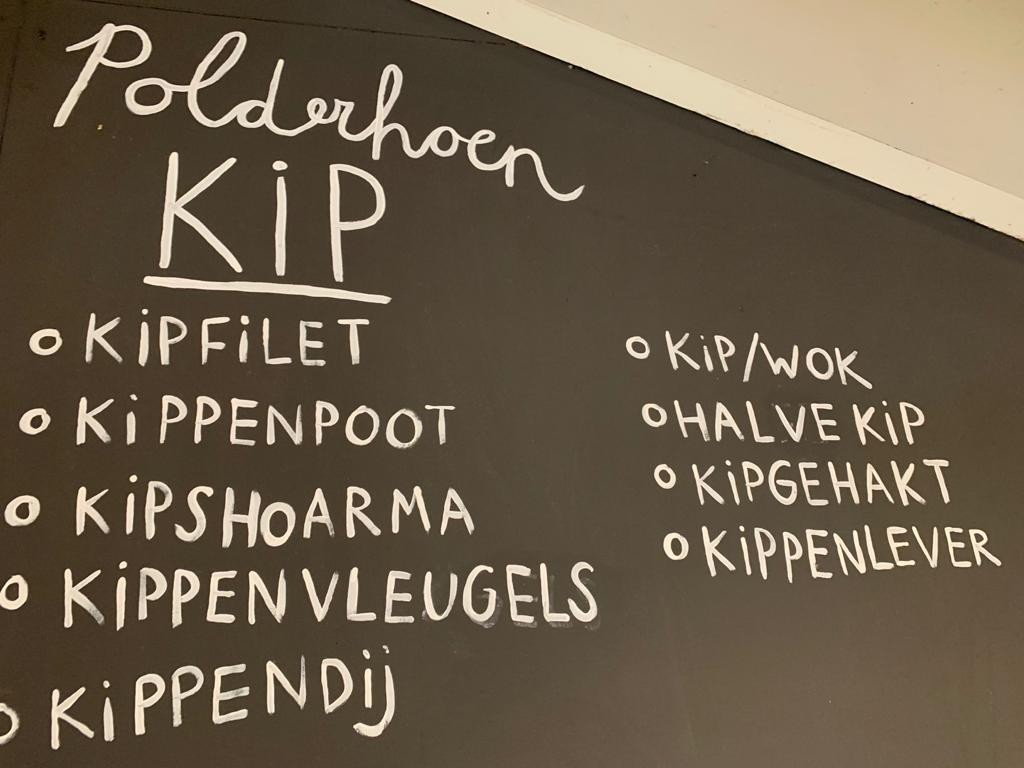 Polderhoen
KiP
o KiPFiLET
o KiPPENPOOT
o KiPSHOARMA
o KiPPENVLEUGELS
o KiPPENDij
o KiP/WOK
o HALVE KiP
o KiPGEHAKT
o KiPPENLEVER